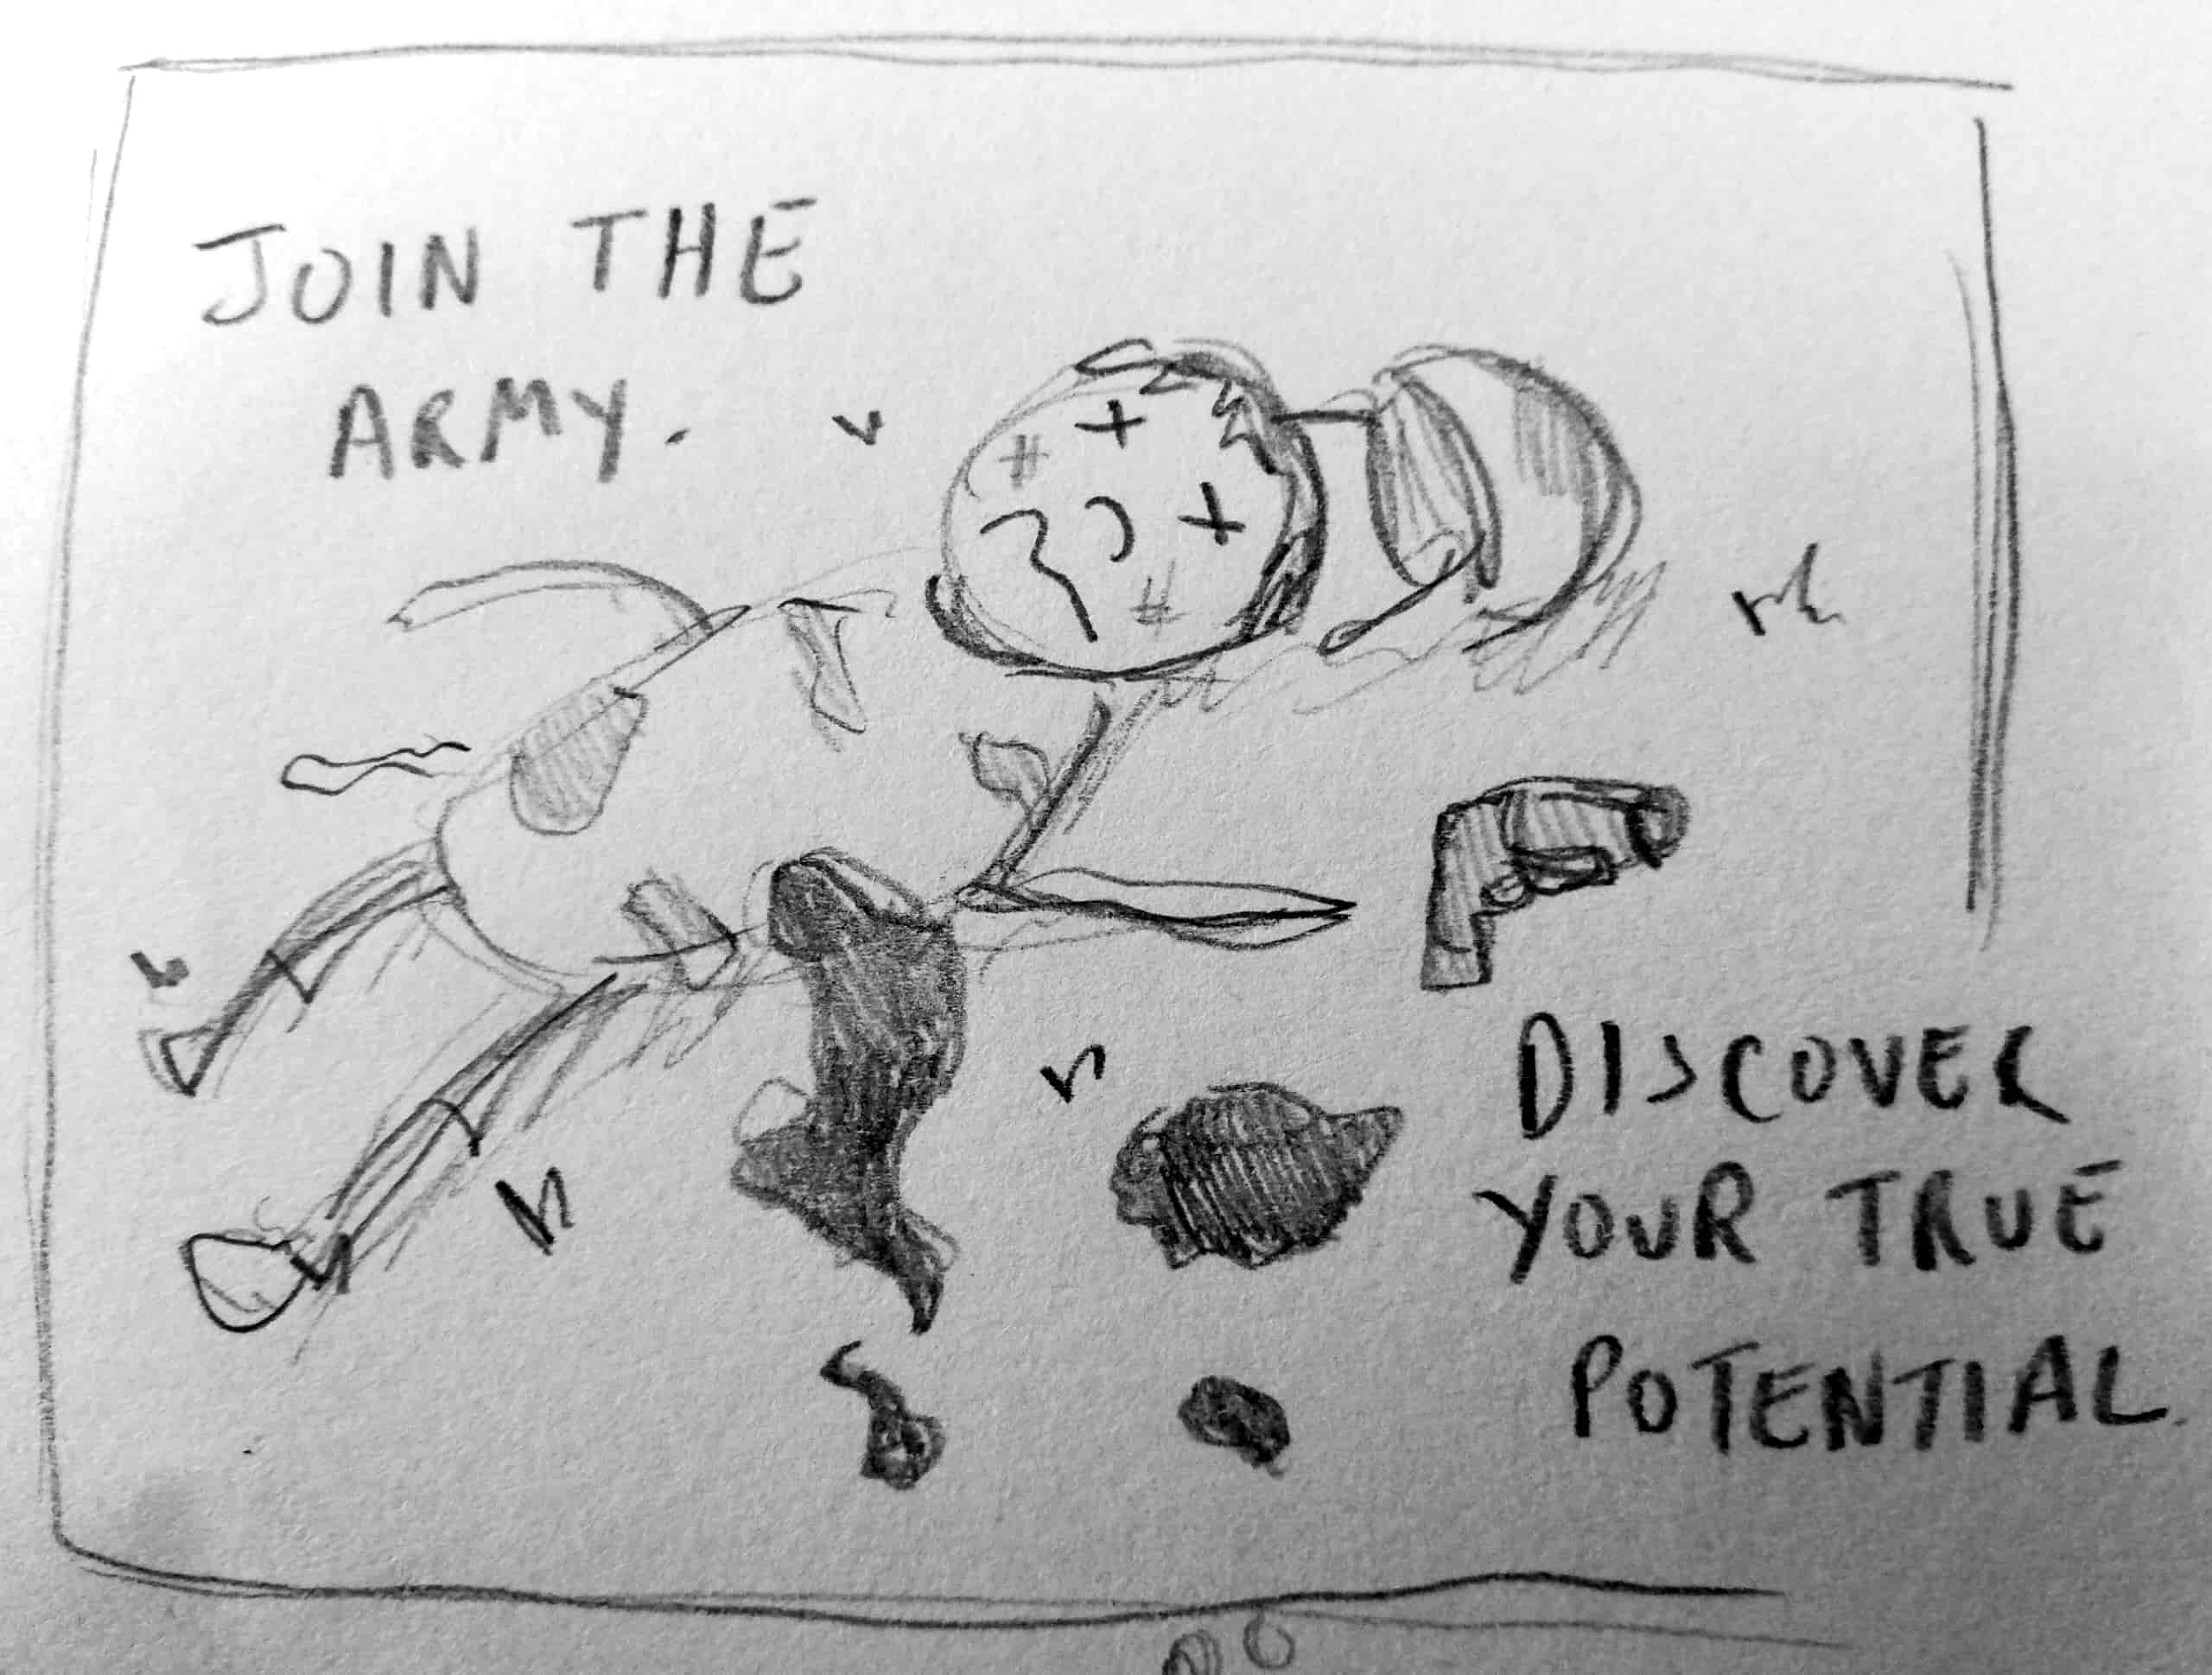 JOIN THE
ARMY.
DISCOVER
YOUR TRUE
POTENTIAL.